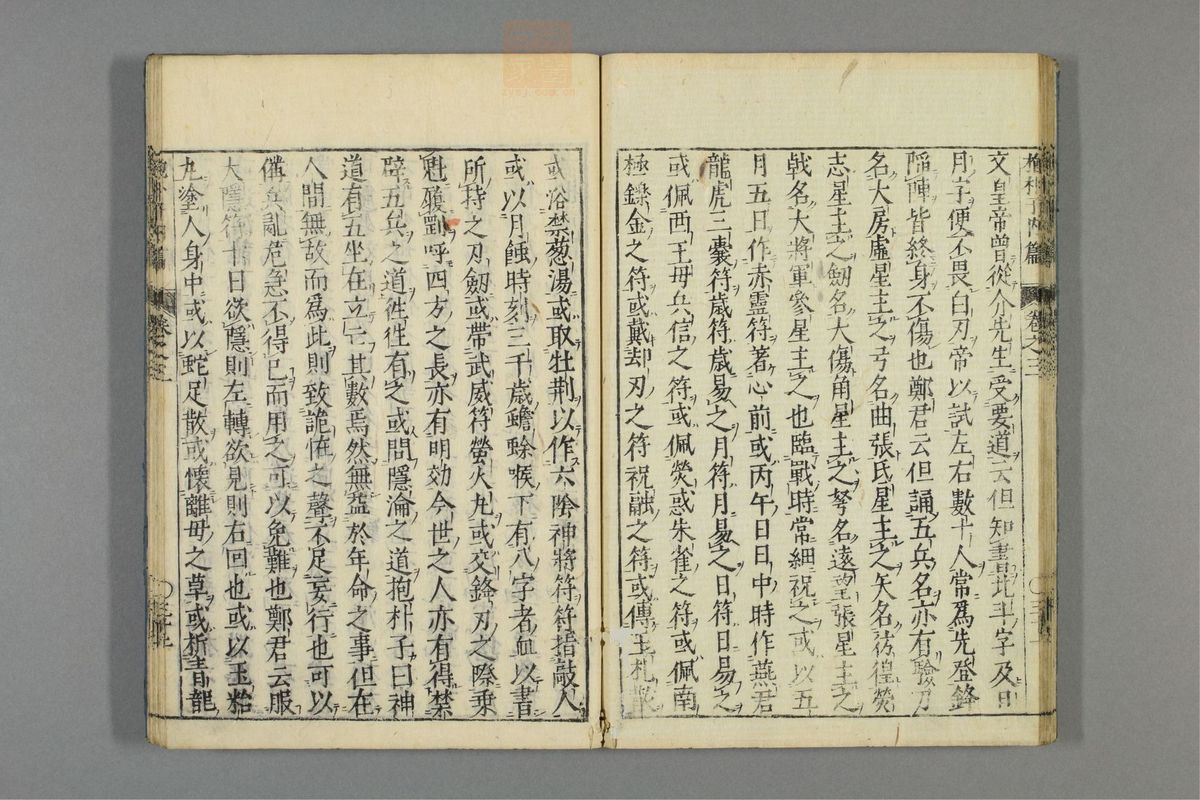 文皇帝曾從介先生受要道云但知書北斗字及日
月字便不畏白刃帝以試左右數十人常爲先登鋒
陷陣皆終身不傷也鄭君云但誦五兵名亦有驗刀
名大房虛星主之弓名曲張氐星主之矢名彷徨熒
惑星主之劔名大傷角星主之弩名遠望張星主之
戟名大將軍參星主之也臨戰時常細祝之或以五
月五日作赤靈符著心前或丙午日日中時作燕君
龍虎三囊符歲符歲易之月符月易之日符日易之
或佩西王母兵信之符或佩熒惑朱雀之符或佩南
極鑠金之符或戴却刃之符祝融之符或傳玉札散
或浴禁葱湯或取牡荆以作六陰神將符符指敵人
或以月蝕時刻三千歲蟾蜍喉下有八字者血以書
所持之刃劔或帶武威符螢火丸或交鋒刃之際乗
魁履剛呼四方之長亦有明効今世之人亦有得禁
辟五兵之道徃徃有之或問隱淪之道抱朴子曰神
道有五坐在立亡其數焉然無益於年命之事但在
人間無故而爲此則致詭恠之聲不足妄行也可以
備兵亂危急不得已而用之可以免難也鄭君云服
大隱符十日欲隱則左轉欲見則右回也或以玉粭
丸塗人身中或以蛇足散或懷離母之草或折青龍